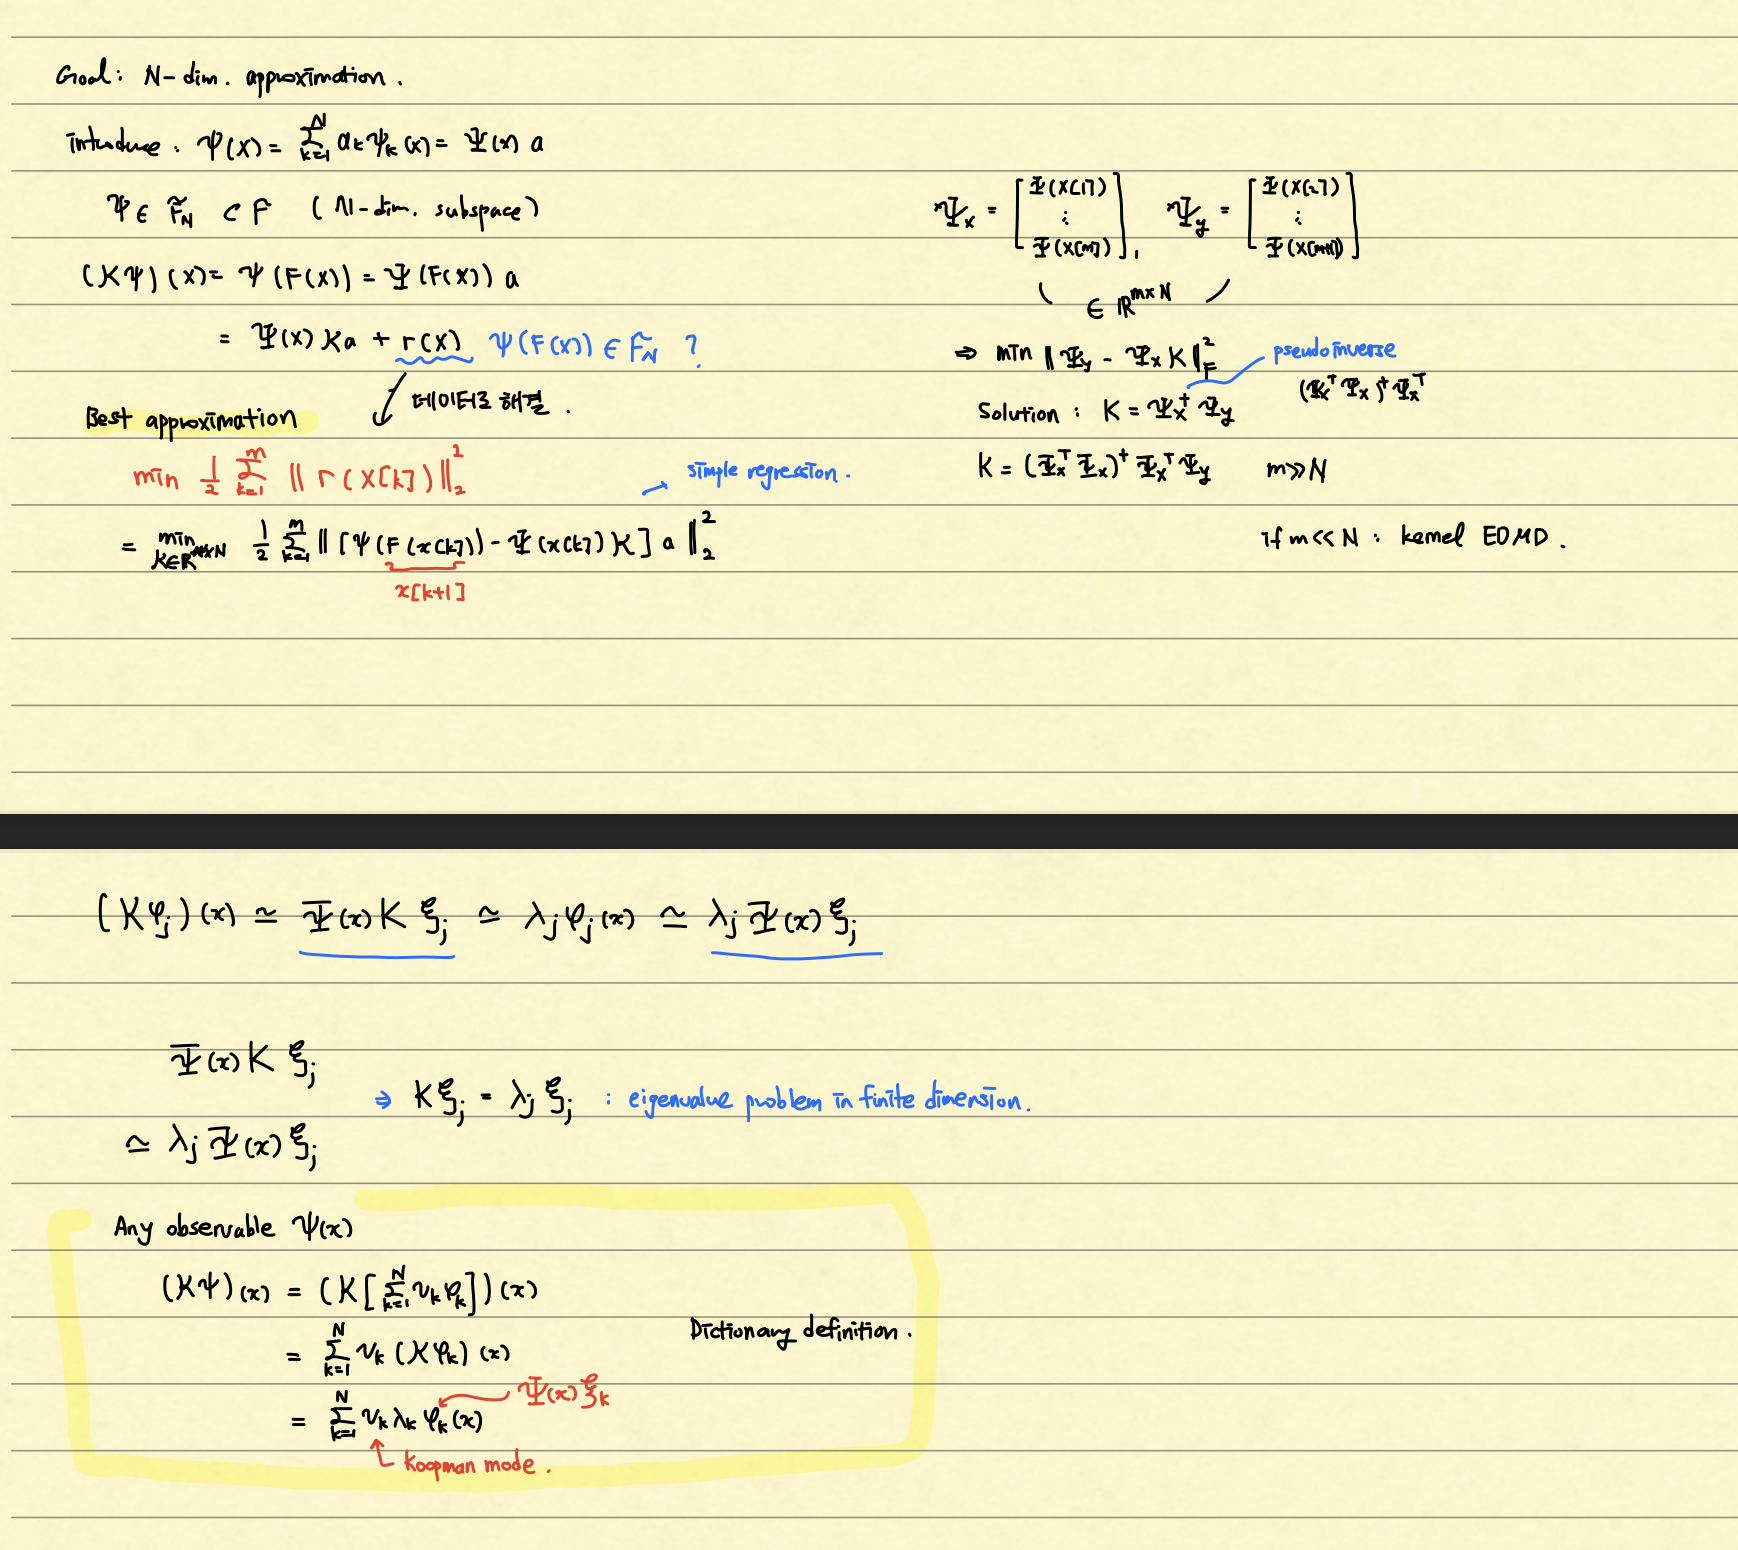 Goal : N-dim. approximation.
introduce : ψ(x) = Σ_{k=1}^{N} a_k ψ_k(x) = Ψ(x) a
ψ ∈ F̃_N ⊂ F ( N-dim. subspace )
(𝒦ψ)(x) = ψ(F(x)) = Ψ(F(x)) a
= Ψ(x) K a + r(x) ψ(F(x)) ∈ F̃_N ?
데이터로 해결 .
Best approximation
min 1/2 Σ_{k=1}^{m} ‖ r(x[k]) ‖_2^2
simple regression .
= min_{K∈R^{N×N}} 1/2 Σ_{k=1}^{m} ‖ [Ψ(F(x[k])) - Ψ(x[k]) K] a ‖_2^2
x[k+1]
Ψ_x = [ Ψ(x[1]) ⋮ Ψ(x[m]) ] , Ψ_y = [ Ψ(x[2]) ⋮ Ψ(x[m+1]) ]
∈ R^{m×N}
⇒ min ‖ Ψ_y - Ψ_x K ‖_F^2 pseudo inverse
(Ψ_x^T Ψ_x)^+ Ψ_x^T
Solution : K = Ψ_x^+ Ψ_y
K = (Ψ_x^T Ψ_x)^+ Ψ_x^T Ψ_y m≫N
if m << N : kernel EDMD .
(𝒦φ_j)(x) ≃ Ψ(x) K ξ_j ≃ λ_j φ_j(x) ≃ λ_j Ψ(x) ξ_j
Ψ(x) K ξ_j
⇒ K ξ_j = λ_j ξ_j : eigenvalue problem in finite dimension.
≃ λ_j Ψ(x) ξ_j
Any observable ψ(x)
(𝒦ψ)(x) = (𝒦[Σ_{k=1}^{N} v_k φ_k])(x)
= Σ_{k=1}^{N} v_k (𝒦φ_k)(x)
Dictionary definition .
= Σ_{k=1}^{N} v_k λ_k φ_k(x)
Ψ(x) ξ_k
Koopman mode .